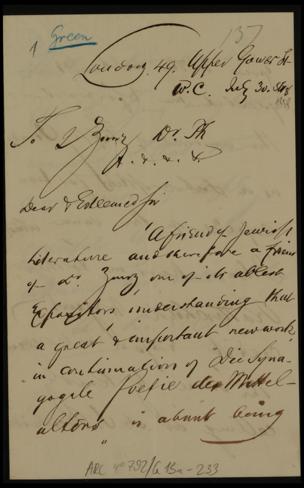 1 Green 137
London, 49. Upper Gower St
W.C. July 30.
To L Zunz Dr. Ph
&. &. &. &
Dear & Esteemed Sir
"A friend of Jewish
Literature and therefore a friend
of Dr. Zunz one of its ablest
Expositors" understanding that
a great & important new work
in continuation of "Die Syna-
gogale Poesie des Mittel-
alters" is about being
ARC 4° 792/G 13a-233